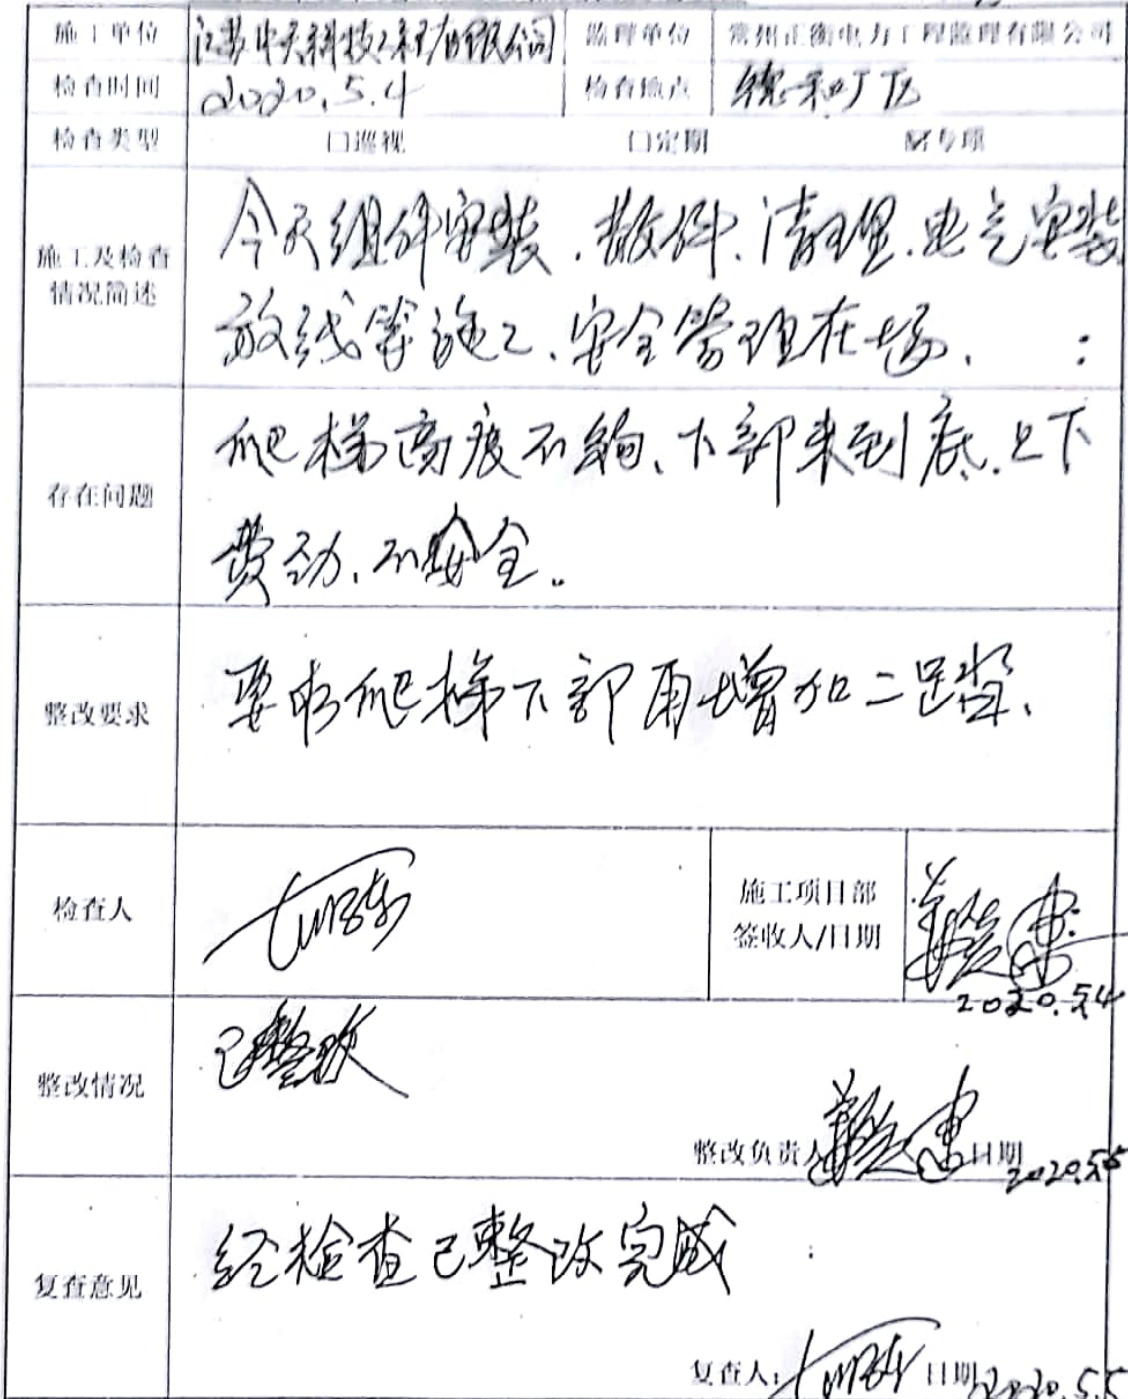 施工单位 江苏中天科技工程有限公司 监理单位 常州正衡电力工程监理有限公司
检查时间 2020.5.4 检查地点 德和厂区
检查类型 口巡视 口定期 专项
施工及检查
情况简述
今天组件安装、散件、清理、电气安装
放线等施工、安全管理在场、
存在问题
爬梯高度不够、下部未到底、上下
费劲、不安全。
整改要求
要求爬梯下部再增加二踏
检查人
施工项目部
签收人/日期
2020.5.4
整改情况
已整改
整改负责人 日期 2020.5.5
复查意见
经检查已整改完成
复查人: 日期 2020.5.5